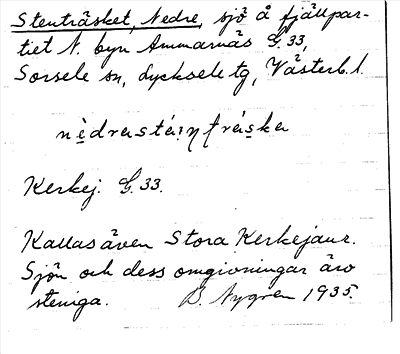 Stenträsket, Nedre, sjö å fjällpar-
tiet N. byn Ammarnäs G.33,
Sorsele sn, Lycksele tg, Västerb. l.
Kerkej. G.33.
Kallas även Stora Kerkejaur.
Sjön och dess omgivningar äro
steniga. B. Nygren 1935.